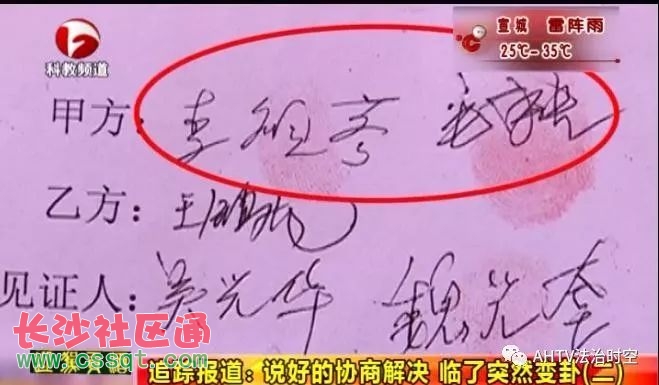 科教频道
宣城 雷阵雨
25℃-35℃
甲方:
乙方: 王
见证人: 吴光华 魏光
长沙社区通
www.cssqt.com
追踪报道:说好的协商解决 临了突然变卦(二)
AHTV法治时空